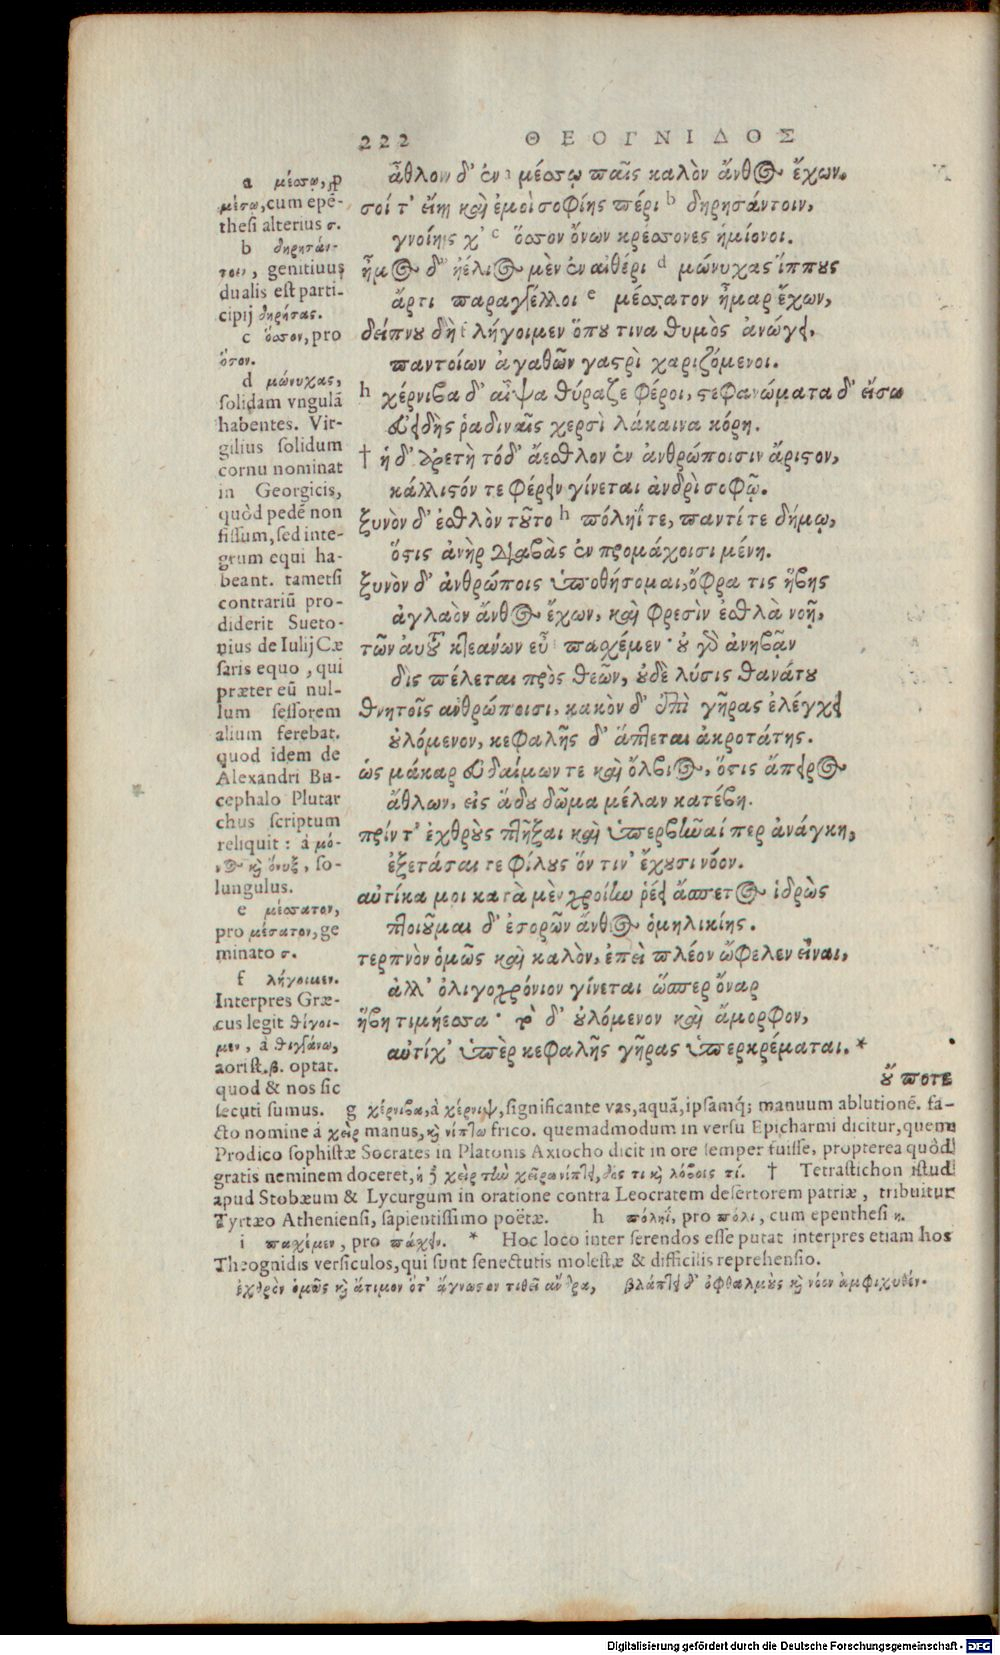 222 ΘΕΟΓΝΙΔΟΣ
ἆθλον δ' ἐν a μέσσῳ παῖς καλὸν ἄνθος ἔχων.
σοί τ' εἴη καὶ ἐμοὶ σοφίης πέρι b δηρησάντοιν,
γνοίης χ' c ὅσσον ὄνων κρέσσονες ἡμίονοι.
ἦμος δ' ἠέλιος μὲν ἐν αἰθέρι d μώνυχας ἵππους
ἄρτι παραγγέλλοι e μέσσατον ἦμαρ ἔχων,
δείπνου δὴ f λήγοιμεν ὅπου τινα θυμὸς ἀνώγει,
παντοίων ἀγαθῶν γαστρὶ χαριζόμενοι.
h χέρνιβα δ' αἶψα θύραζε φέροι, στεφανώματα δ' εἴσω
εὐειδὴς ῥαδιναῖς χερσὶ λάκαινα κόρη.
† ἡ δ' ἀρετὴ τόδ' ἄεθλον ἐν ἀνθρώποισιν ἄριστον,
κάλλιστόν τε φέρειν γίνεται ἀνδρὶ σοφῷ.
ξυνὸν δ' ἐσθλὸν τοῦτο h πόληΐ τε, παντί τε δήμῳ,
ὅστις ἀνὴρ διαβὰς ἐν προμάχοισι μένῃ.
ξυνὸν δ' ἀνθρώποις ὑποθήσομαι, ὄφρα τις ἥβης
ἀγλαὸν ἄνθος ἔχων, καὶ φρεσὶν ἐσθλὰ νοῇ,
τῶν αὐτοῦ κτεάνων εὖ i πασχέμεν· οὐ γὰρ ἀνηβᾷν
δὶς πέλεται πρὸς θεῶν, οὐδὲ λύσις θανάτου
θνητοῖς ἀνθρώποισι, κακὸν δ' ἐπὶ γῆρας ἐλέγχει
οὐλόμενον, κεφαλῆς δ' ἅπτεται ἀκροτάτης.
ὡς μάκαρ εὐδαίμων τε καὶ ὄλβιος, ὅστις ἄπειρος
ἄθλων, εἰς ᾅδου δῶμα μέλαν κατέβη.
πρίν τ' ἐχθροὺς πτῆξαι καὶ ὑπερβῆναί περ ἀνάγκη,
ἐξετάσαι τε φίλους ὅν τιν' ἔχουσι νόον.
αὐτίκα μοι κατὰ μὲν χροίην ῥέει ἄσπετος ἱδρὼς
πτοιοῦμαι δ' ἐσορῶν ἄνθος ὁμηλικίης.
τερπνὸν ὁμῶς καὶ καλὸν, ἐπεὶ πλέον ὤφελεν εἶναι,
ἀλλ' ὀλιγοχρόνιον γίνεται ὥσπερ ὄναρ
ἥβη τιμήεσσα· τὸ δ' οὐλόμενον καὶ ἄμορφον,
αὐτίχ' ὑπὲρ κεφαλῆς γῆρας ὑπερκρέμαται. *
οὔποτε
a μέσσῳ, pro
μέσῳ, cum epē-
thesi alterius σ.
b δηρησάν-
τοιν, genitiuus
dualis est parti-
cipij δηρήσας.
c ὅσσον, pro
ὅσον.
d μώνυχας,
solidam vngulā
habentes. Vir-
gilius solidum
cornu nominat
in Georgicis,
quòd pedē non
fissum, sed inte-
grum equi ha-
beant. tametsi
contrariū pro-
diderit Sueto-
nius de Iulij Cæ
saris equo, qui
præter eū nul-
lum sessorem
alium ferebat.
quod idem de
Alexandri Bu-
cephalo Plutar
chus scriptum
reliquit: à μό-
νος καὶ ὄνυξ, so-
lungulus.
e μέσσατον,
pro μέσατον, ge
minato σ.
f λήγοιμεν.
Interpres Græ-
cus legit θίγοι-
μεν, à θιγγάνω,
aorist. β. optat.
quod & nos sic
secuti sumus. g χέρνιβα, à χέρνιψ, significante vas, aquā, ipsamq́; manuum ablutionē. fa-
cto nomine à χεὶρ manus, καὶ νίπτω frico. quemadmodum in versu Epicharmi dicitur, quem
Prodico sophistæ Socrates in Platonis Axiocho dicit in ore semper fuisse, propterea quòd
gratis neminem doceret, ἡ δὲ χεὶρ τὴν χεῖρα νίπτει, δός τι καὶ λάβοις τί. † Tetrastichon istud
apud Stobæum & Lycurgum in oratione contra Leocratem desertorem patriæ, tribuitur
Tyrtæo Atheniensi, sapientissimo poëtæ. h πόληΐ, pro πόλι, cum epenthesi η.
i πασχέμεν, pro πάσχειν. * Hoc loco inter serendos esse putat interpres etiam hos
Theognidis versiculos, qui sunt senectutis molestæ & difficilis reprehensio.
ἐχθρὸν ὁμῶς καὶ ἄτιμον ὅτ' ἄγνωστον τιθεῖ ἄνδρα, βλάπτει δ' ὀφθαλμοὺς καὶ νόον ἀμφιχυθέν.
Digitalisierung gefördert durch die Deutsche Forschungsgemeinschaft - DFG